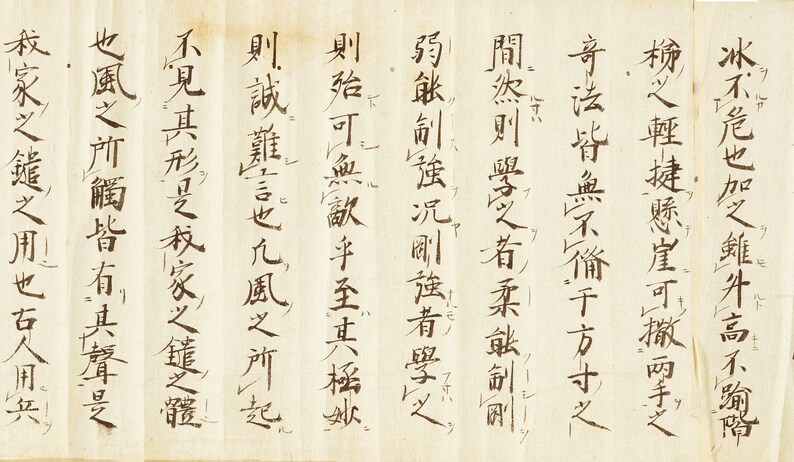 冰不危也加之雖升高不踰階
梯之輕捷懸崖可撒兩手之
奇法皆無不備于方寸之
間然則學之者柔能制剛
弱能制強况剛強者學之
則殆可無敵乎至其極妙
則誠難言也凡風之所起
不見其形是我家之鑓之體
也風之所觸皆有其聲是
我家之鑓之用也古人用兵